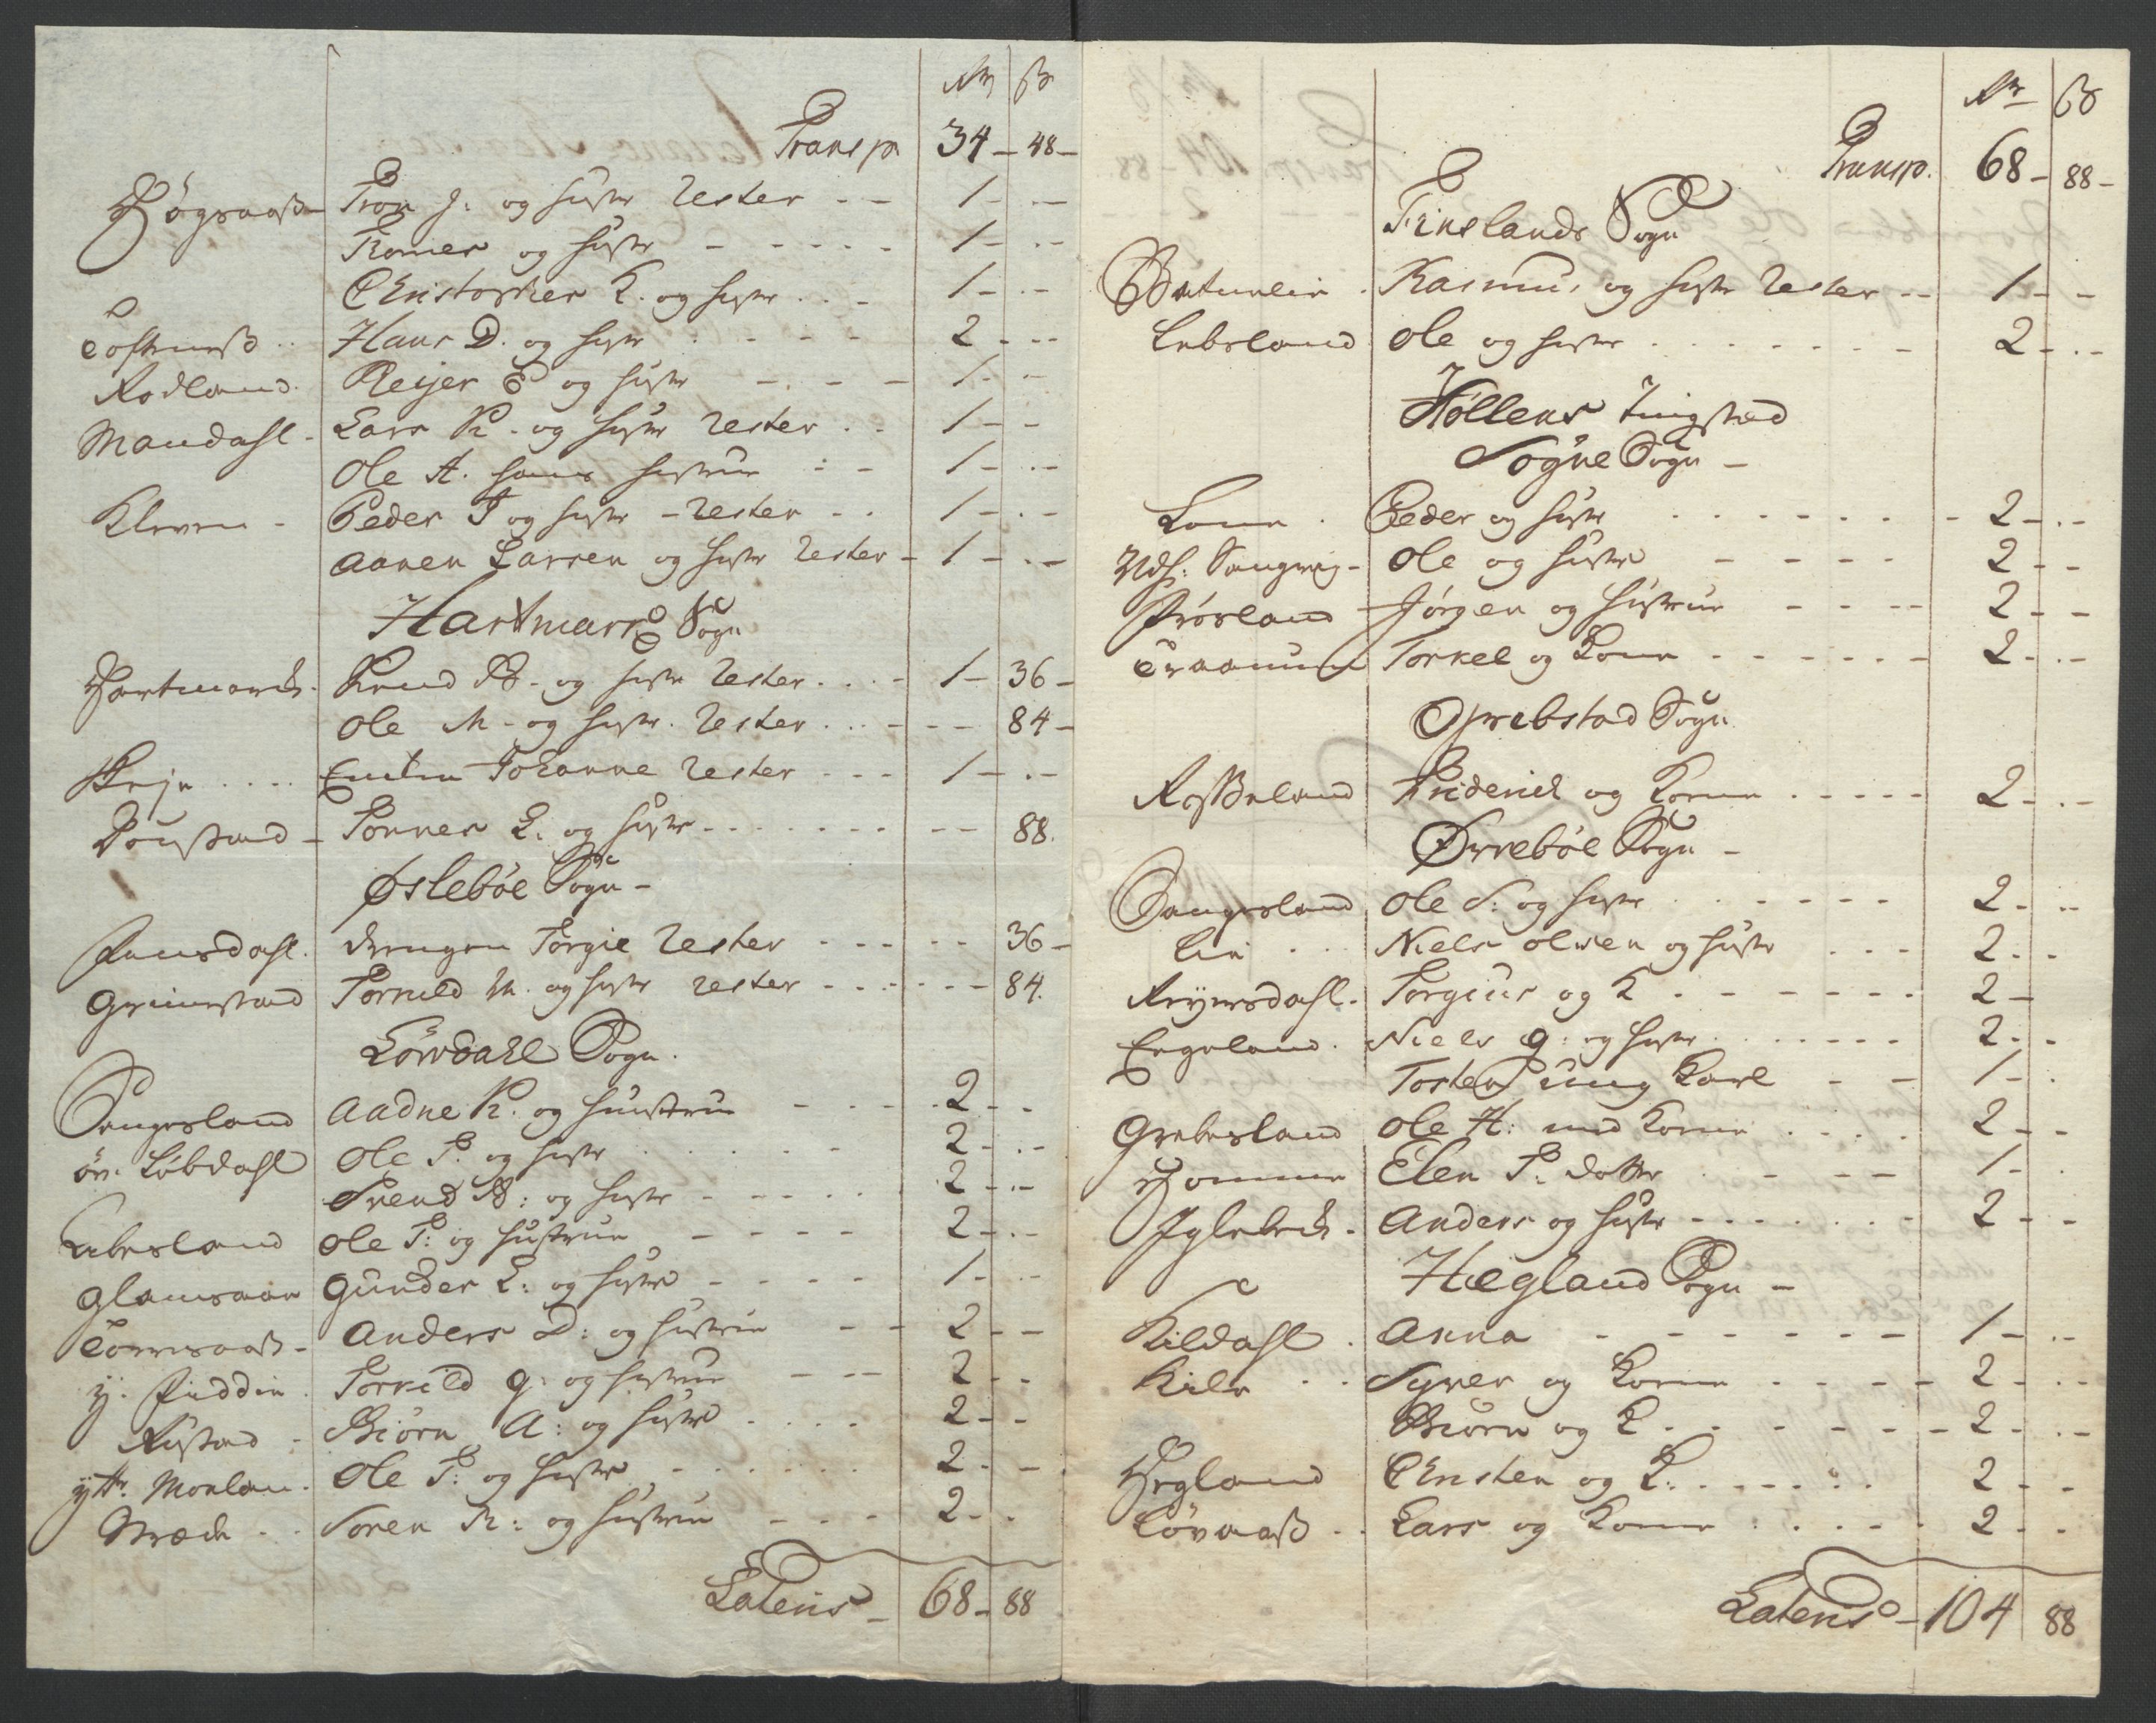 Rdr ß
Transp. 34 – 48 –
Høgsaas – Tron J: og hustr rester – – 1 – – –
Tromes og hustr – – – – – 1 – – –
Christopher K. og hustr . . – 1 – – –
Toftenes . . Hans D. og hustr . . – – – 2 – – –
Rodland . Reijer E og hustr – . – – 1 – –
Mandahl – Lars K – og hustr rester . . 1 – –
Ole A. hans hustrue – – 1 – – –
Kleven – Peder J og hustr – rester – . 1 – – –
Aanen Larsen og hustr rester – 1 – – –
Hartmark Sogn
Hartmarck . Knud B – og hustr rester . . . – 1 – 36 –
Ole M – og hustr . rester . . – – – – 84 –
Skeje . . . . Enken Johanne rester – – – 1 – – –
Tonnes L. og hustr – – – – – – – – 88 .
Øslebøe Sogn –
Drengen Torgie rester – – – – – 36 –
Grimestad Torkild M . og hustr rester – – – – – – – 84 .
Løvdahl Sogn .
Sangesland Aadne K. og hustrue – – – – . 2 – –
ør. Løbdahl Ole T. og hustr . . . . – – 2 – . –
Svend B : og hustr – – – – – 2 – . –
Lebesland Ole T : og hustrue – – – – 2 – . –
Glamsaar Gunder L : og hustr – – – – 1 – – –
Anders D : og hustrue – – 2 – –
Torkild G . og hustrue – – – 2 – –
Ristad – Biørn A : og hustr . . . . 2 – –
ytt. Monlan . Ole T : og hustr – – – – – – 2 – –
Bræck . . Soren M : og hustrue – – – – 2 – –
Latens – 68 – 88

Rdr ß
Transp. 68 – 88 –
Finslands Sogn
Rasmus og hustr rester – – 1 – –
Lebsland Ole og hustr . . . . . . – – 2 – . –
Höllens Tingsted
Søgne Sogn –
Lone . Peder og hustr . . . . . . – – 2 – . –
Uds: Sangvig – Ole og hustr – – – – 2 – –
Frøsland Jørgen og hustrue – – – – 2 – –
Traanum Torkel og Kone – – – – – – 2 – . –
Oprebstad Sogn
Rosseland Friderick og Kone . – – – – – 2 – . –
Ørrebøe Sogn –
Sangesland Ole S : og hustr . . – – – – 2 – . –
Lie . . . Niels Olsen og hustr . – – – 2 – . –
Reijersdahl . Torgius og K . – – – – – . 2 –
Eegeland . Niels G : og hustr . . – – – – – 2 – . –
Tosten ung Karl – – 1 – .
Grebesland Ole H : med Kone . . – . 2 – –
Homme Elen T : Datter . – – – 1 – .
Iglebeck . Anders og hustr – – – – – – – 2 – –
Hægland Sogn –
Kildahl . Anna – – – – – – 1 – . –
Kile . . . Syver og Kone – – – – 2 – . –
Biørn og K . – – – – – – 2 – . –
Hegland Christen og K : . . – – – . . 2 – –
Løvaas . . Lars og Kone . . . – – 2 – –
Latens – 104 88